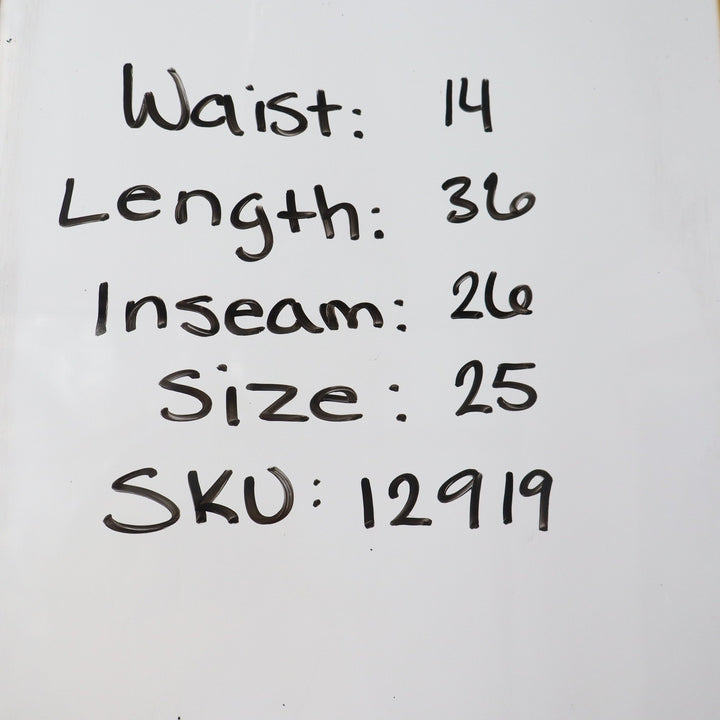 Waist: 14
Length: 36
Inseam: 26
Size: 25
SKU: 12919